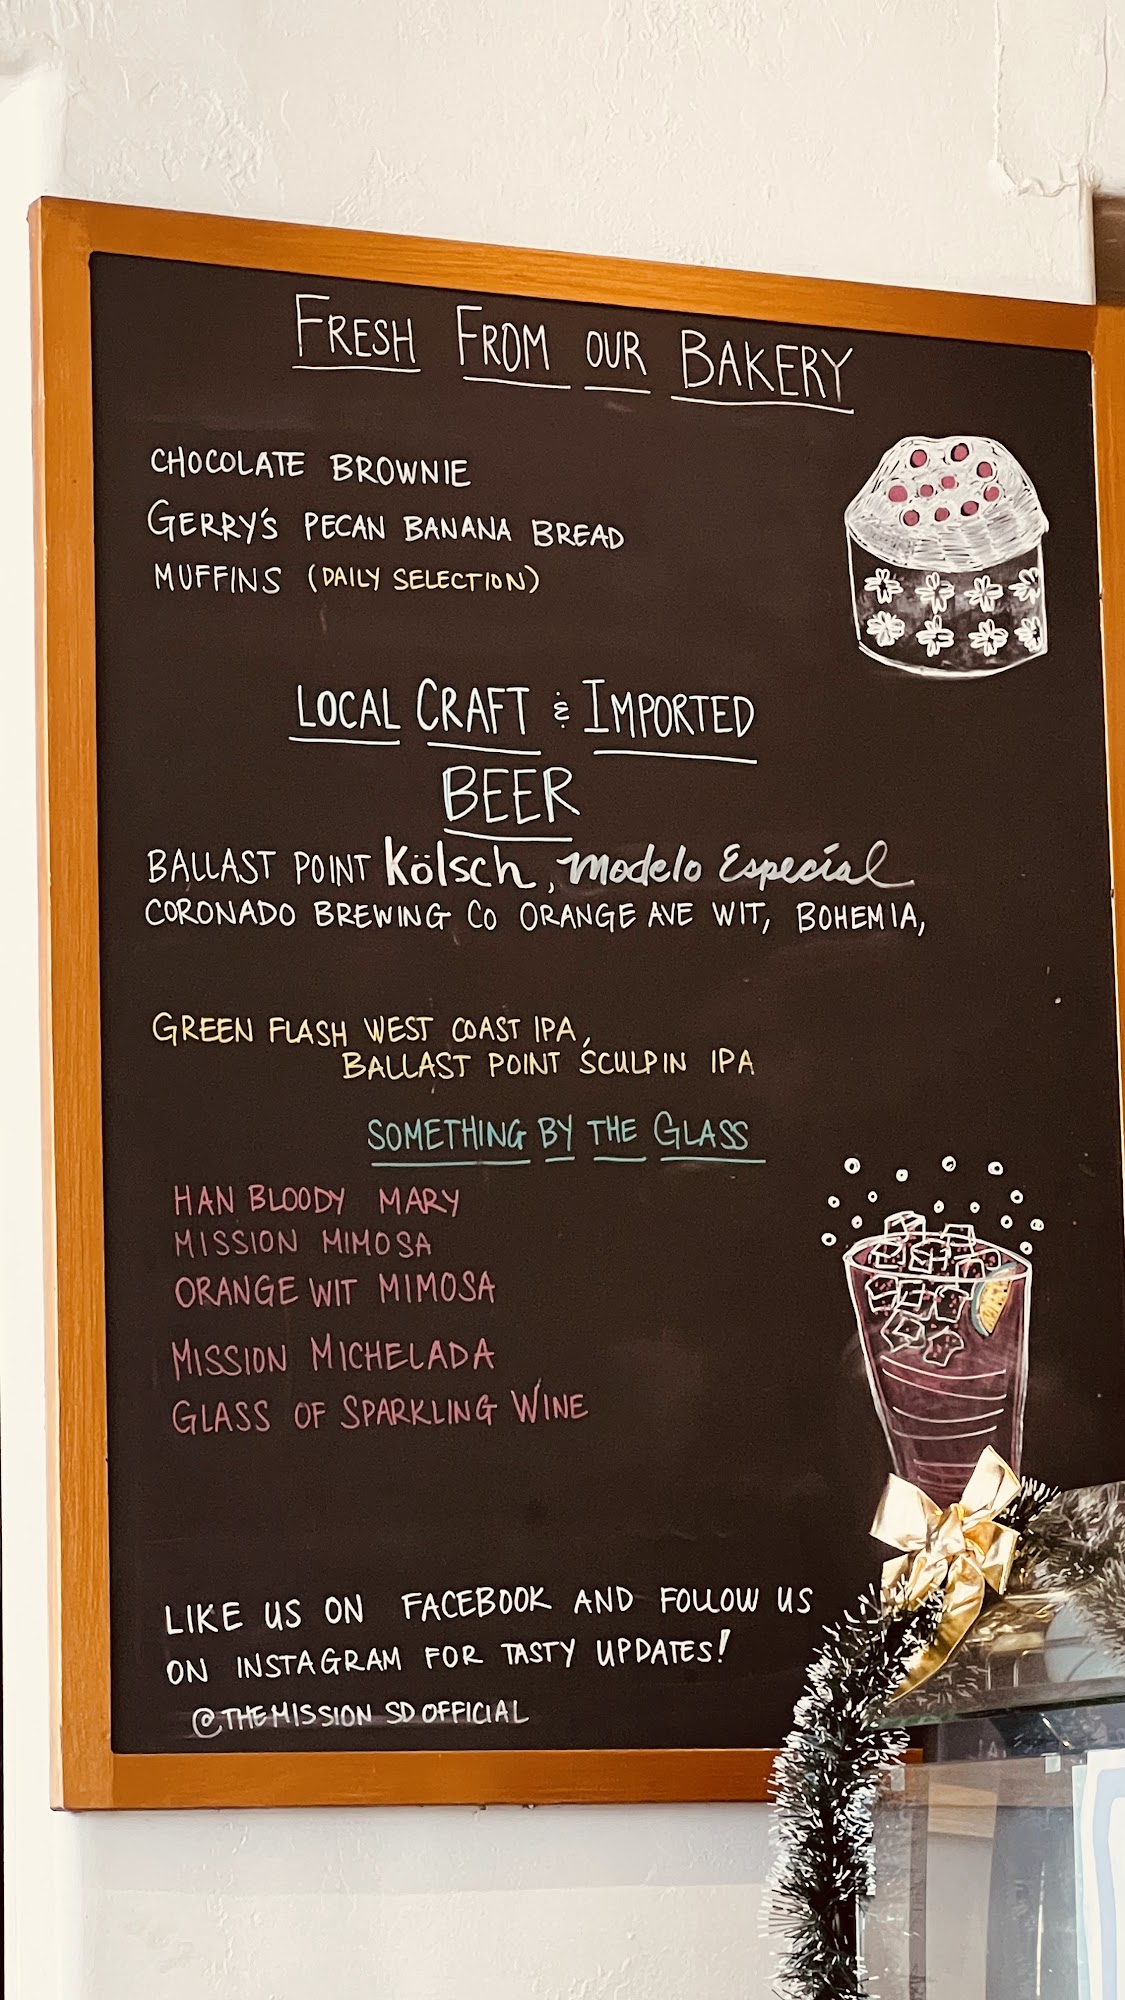 FRESH FROM OUR BAKERY
CHOCOLATE BROWNIE
GERRY'S PECAN BANANA BREAD
MUFFINS (DAILY SELECTION)
LOCAL CRAFT & IMPORTED
BEER
BALLAST POINT Kölsch, Modelo Especial
CORONADO BREWING CO ORANGE AVE WIT, BOHEMIA,
GREEN FLASH WEST COAST IPA,
BALLAST POINT SCULPIN IPA
SOMETHING BY THE GLASS
HAN BLOODY MARY
MISSION MIMOSA
ORANGE WIT MIMOSA
MISSION MICHELADA
GLASS OF SPARKLING WINE
LIKE US ON FACEBOOK AND FOLLOW US
ON INSTAGRAM FOR TASTY UPDATES!
@THEMISSION SD OFFICIAL